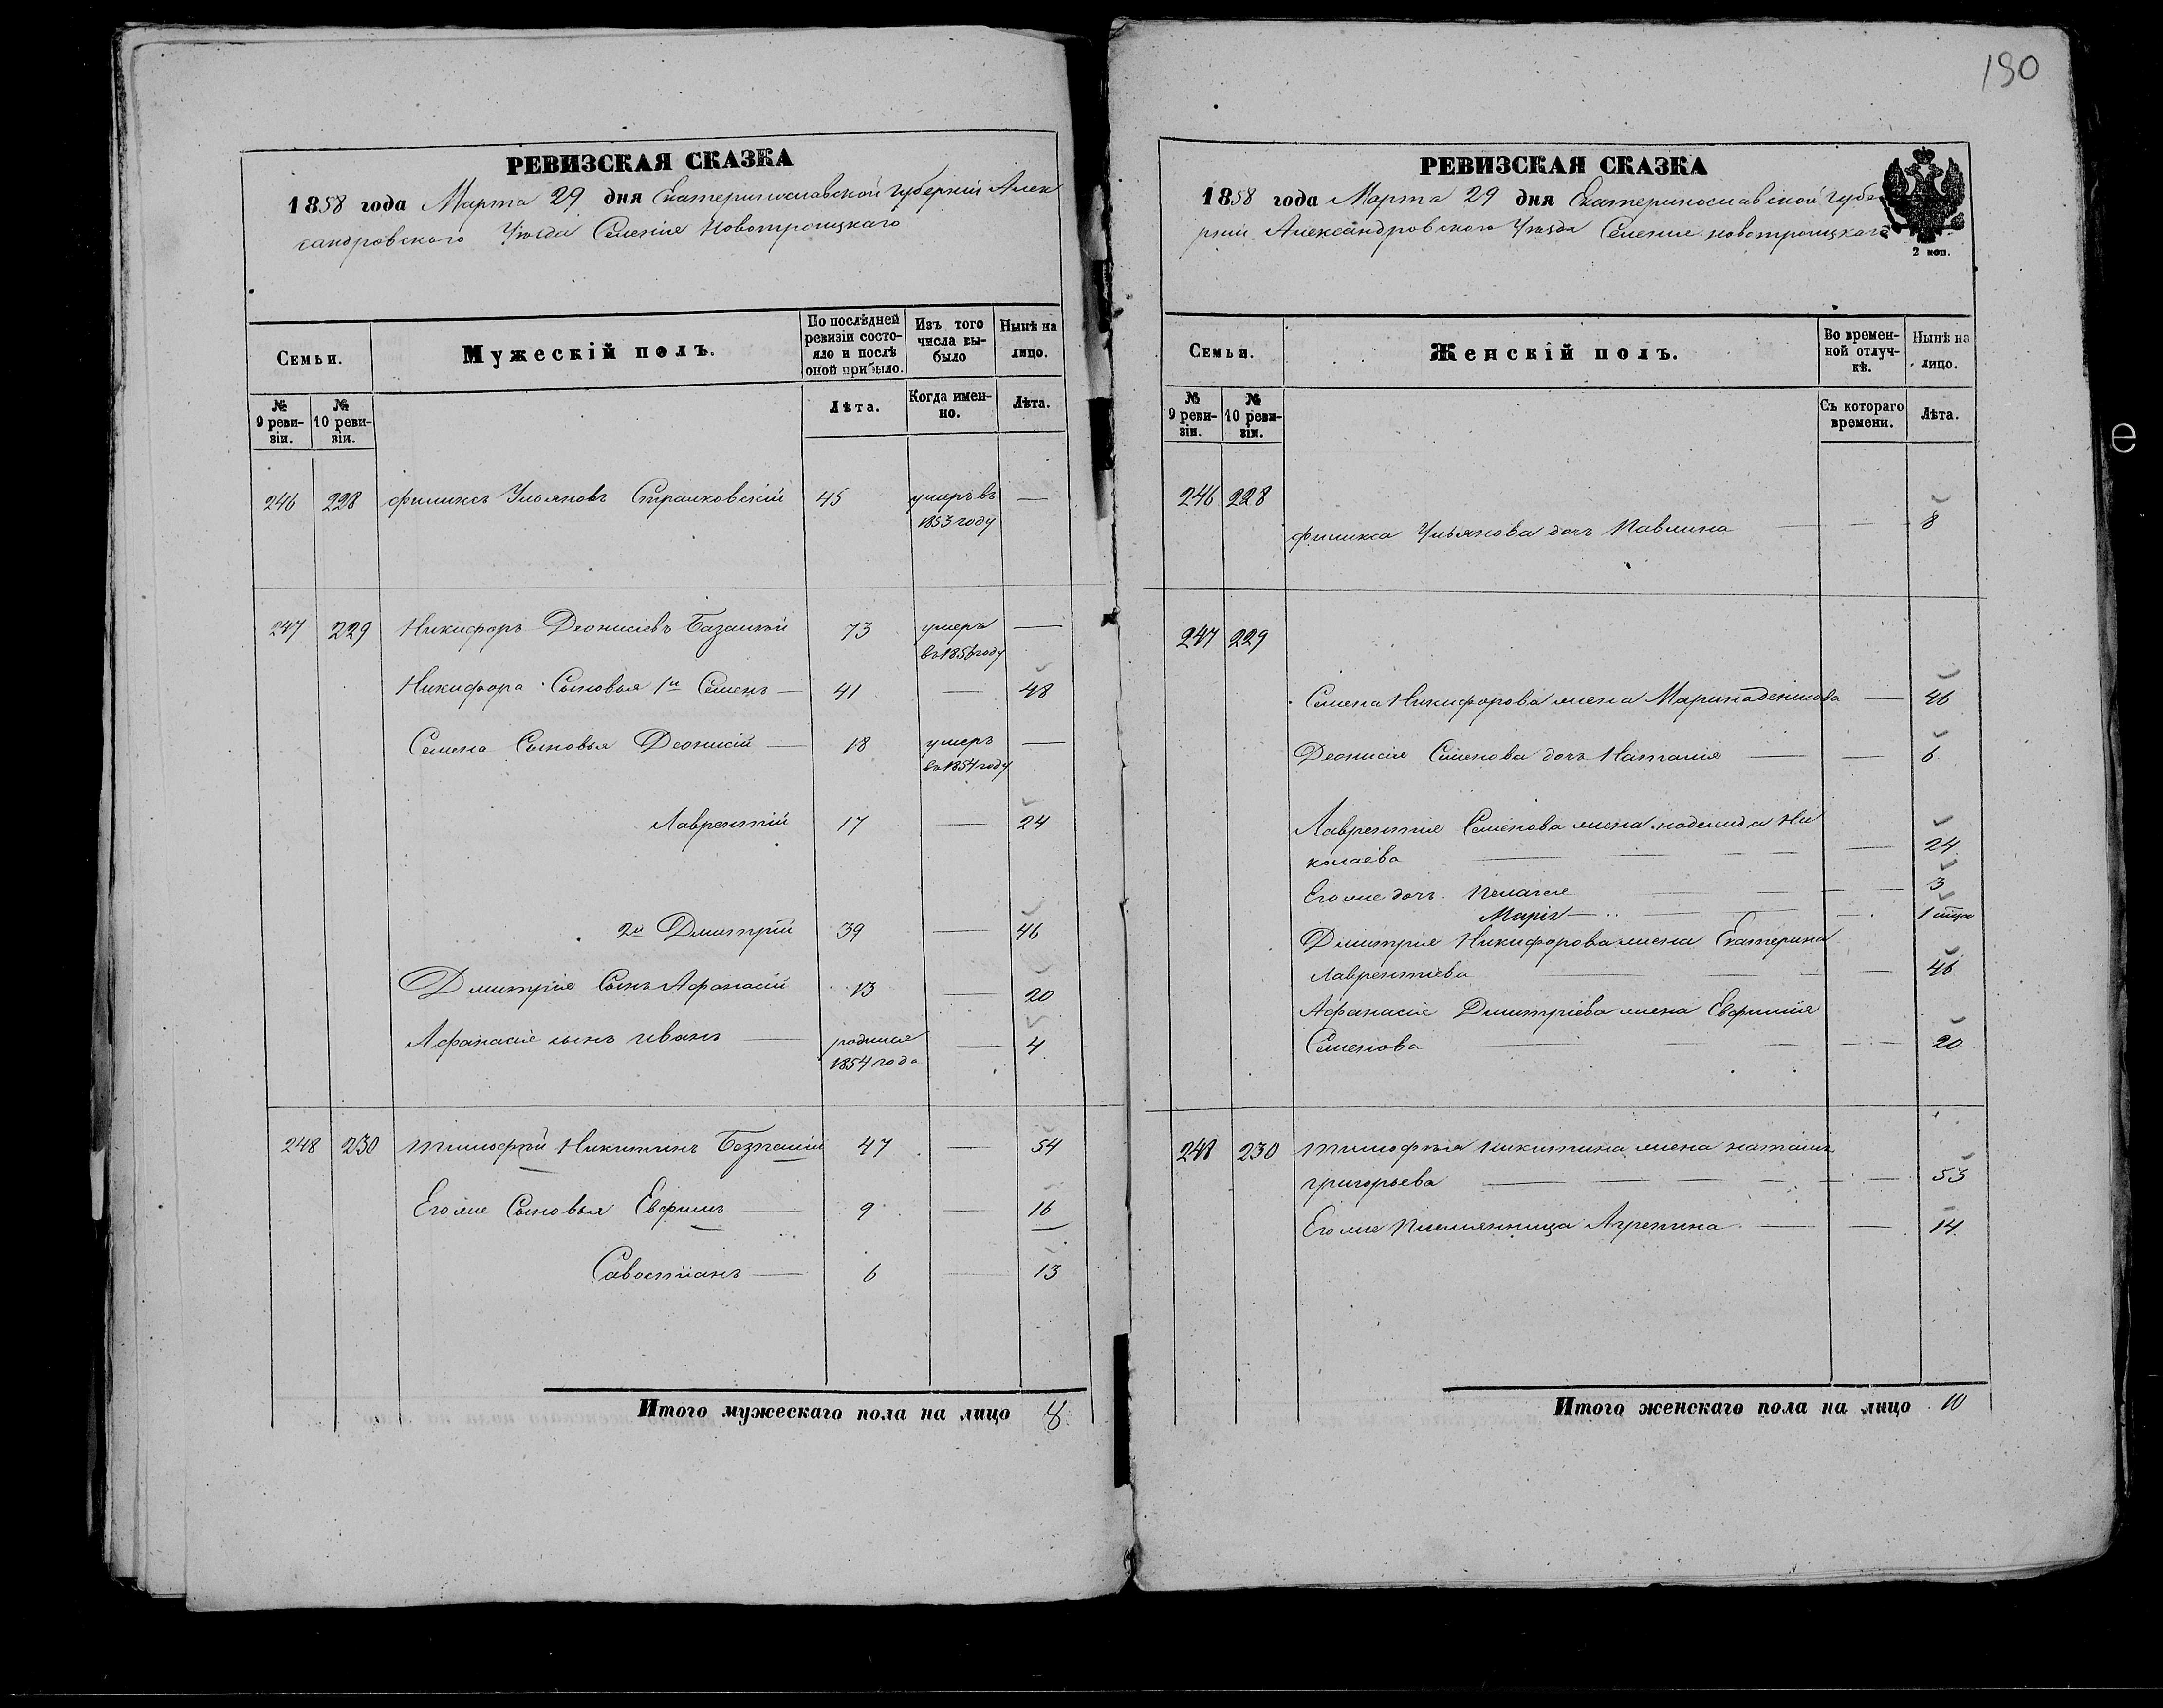 190
РЕВИЗСКАЯ СКАЗКА
1858 года Марта 29 дня Екатеринославской губерніи Алек
сандровского Уѣзда Селенія Новотроицкаго
Семьи.
Мужескій полъ.
По послѣдней ревизіи состо-
яло и послѣ
оной прибыло.
Изъ того
числа вы-
было
Нынѣ на
лицо.
№
9 реви-
зіи.
№
10 реви-
зіи.
Лѣта.
Когда имен-
но.
Лѣта.
246 228 Филиксъ Ульяновъ 45 умеръ въ —
1853 году
247 229 Никифоръ Деонисіевъ 73 умеръ —
въ 1856 году
Никифора Сыновья 1й Семенъ — 41 — 48
Семена Сыновья Деонисій — 18 умеръ —
въ 1854 году
Лаврентій 17 — 24
2й Дмитрій 39 — 46
Дмитрія Сынъ Афанасій 13 — 20
Афанасія сынъ иванъ — родился — 4
1854 года
248 230 тимофѣй Никитинъ 47 — 54
Его же Сыновья Евфимъ — 9 — 16
Савостіанъ — 6 — 13
Итого мужескаго пола на лицо 8
РЕВИЗСКАЯ СКАЗКА
1858 года Марта 29 дня Екатеринославской Губе
рніи Александровского Уѣзда Селенія новотроицкаго
2 коп.
Семьи.
Женскій полъ.
Во времен-
ной отлуч-
кѣ.
Нынѣ на
лицо.
№
9 реви-
зіи.
№
10 реви-
зіи.
Съ котораго
времени.
Лѣта.
246 228
филикса Ульянова дочь Павлина — — 8
247 229
Семена Никифорова жена Марина — 46
Деонисія Семенова дочь Наталія — — 6
Лаврентія Семенова жена Ни
колаева — — — — — 24
Его же дочь Пелагея — — — — 3
Марія — — — — 1
Дмитрія Никифорова жена Екатерина
Лаврентіева — — — — 46
Афанасія Дмитріева жена Евфимія
Семенова — — — — 20
248 230 тимофѣя никитина жена наталія
григорьева — — — — — — 53
Его же Племянница Агрепина — — 14
Итого женскаго пола на лицо 10